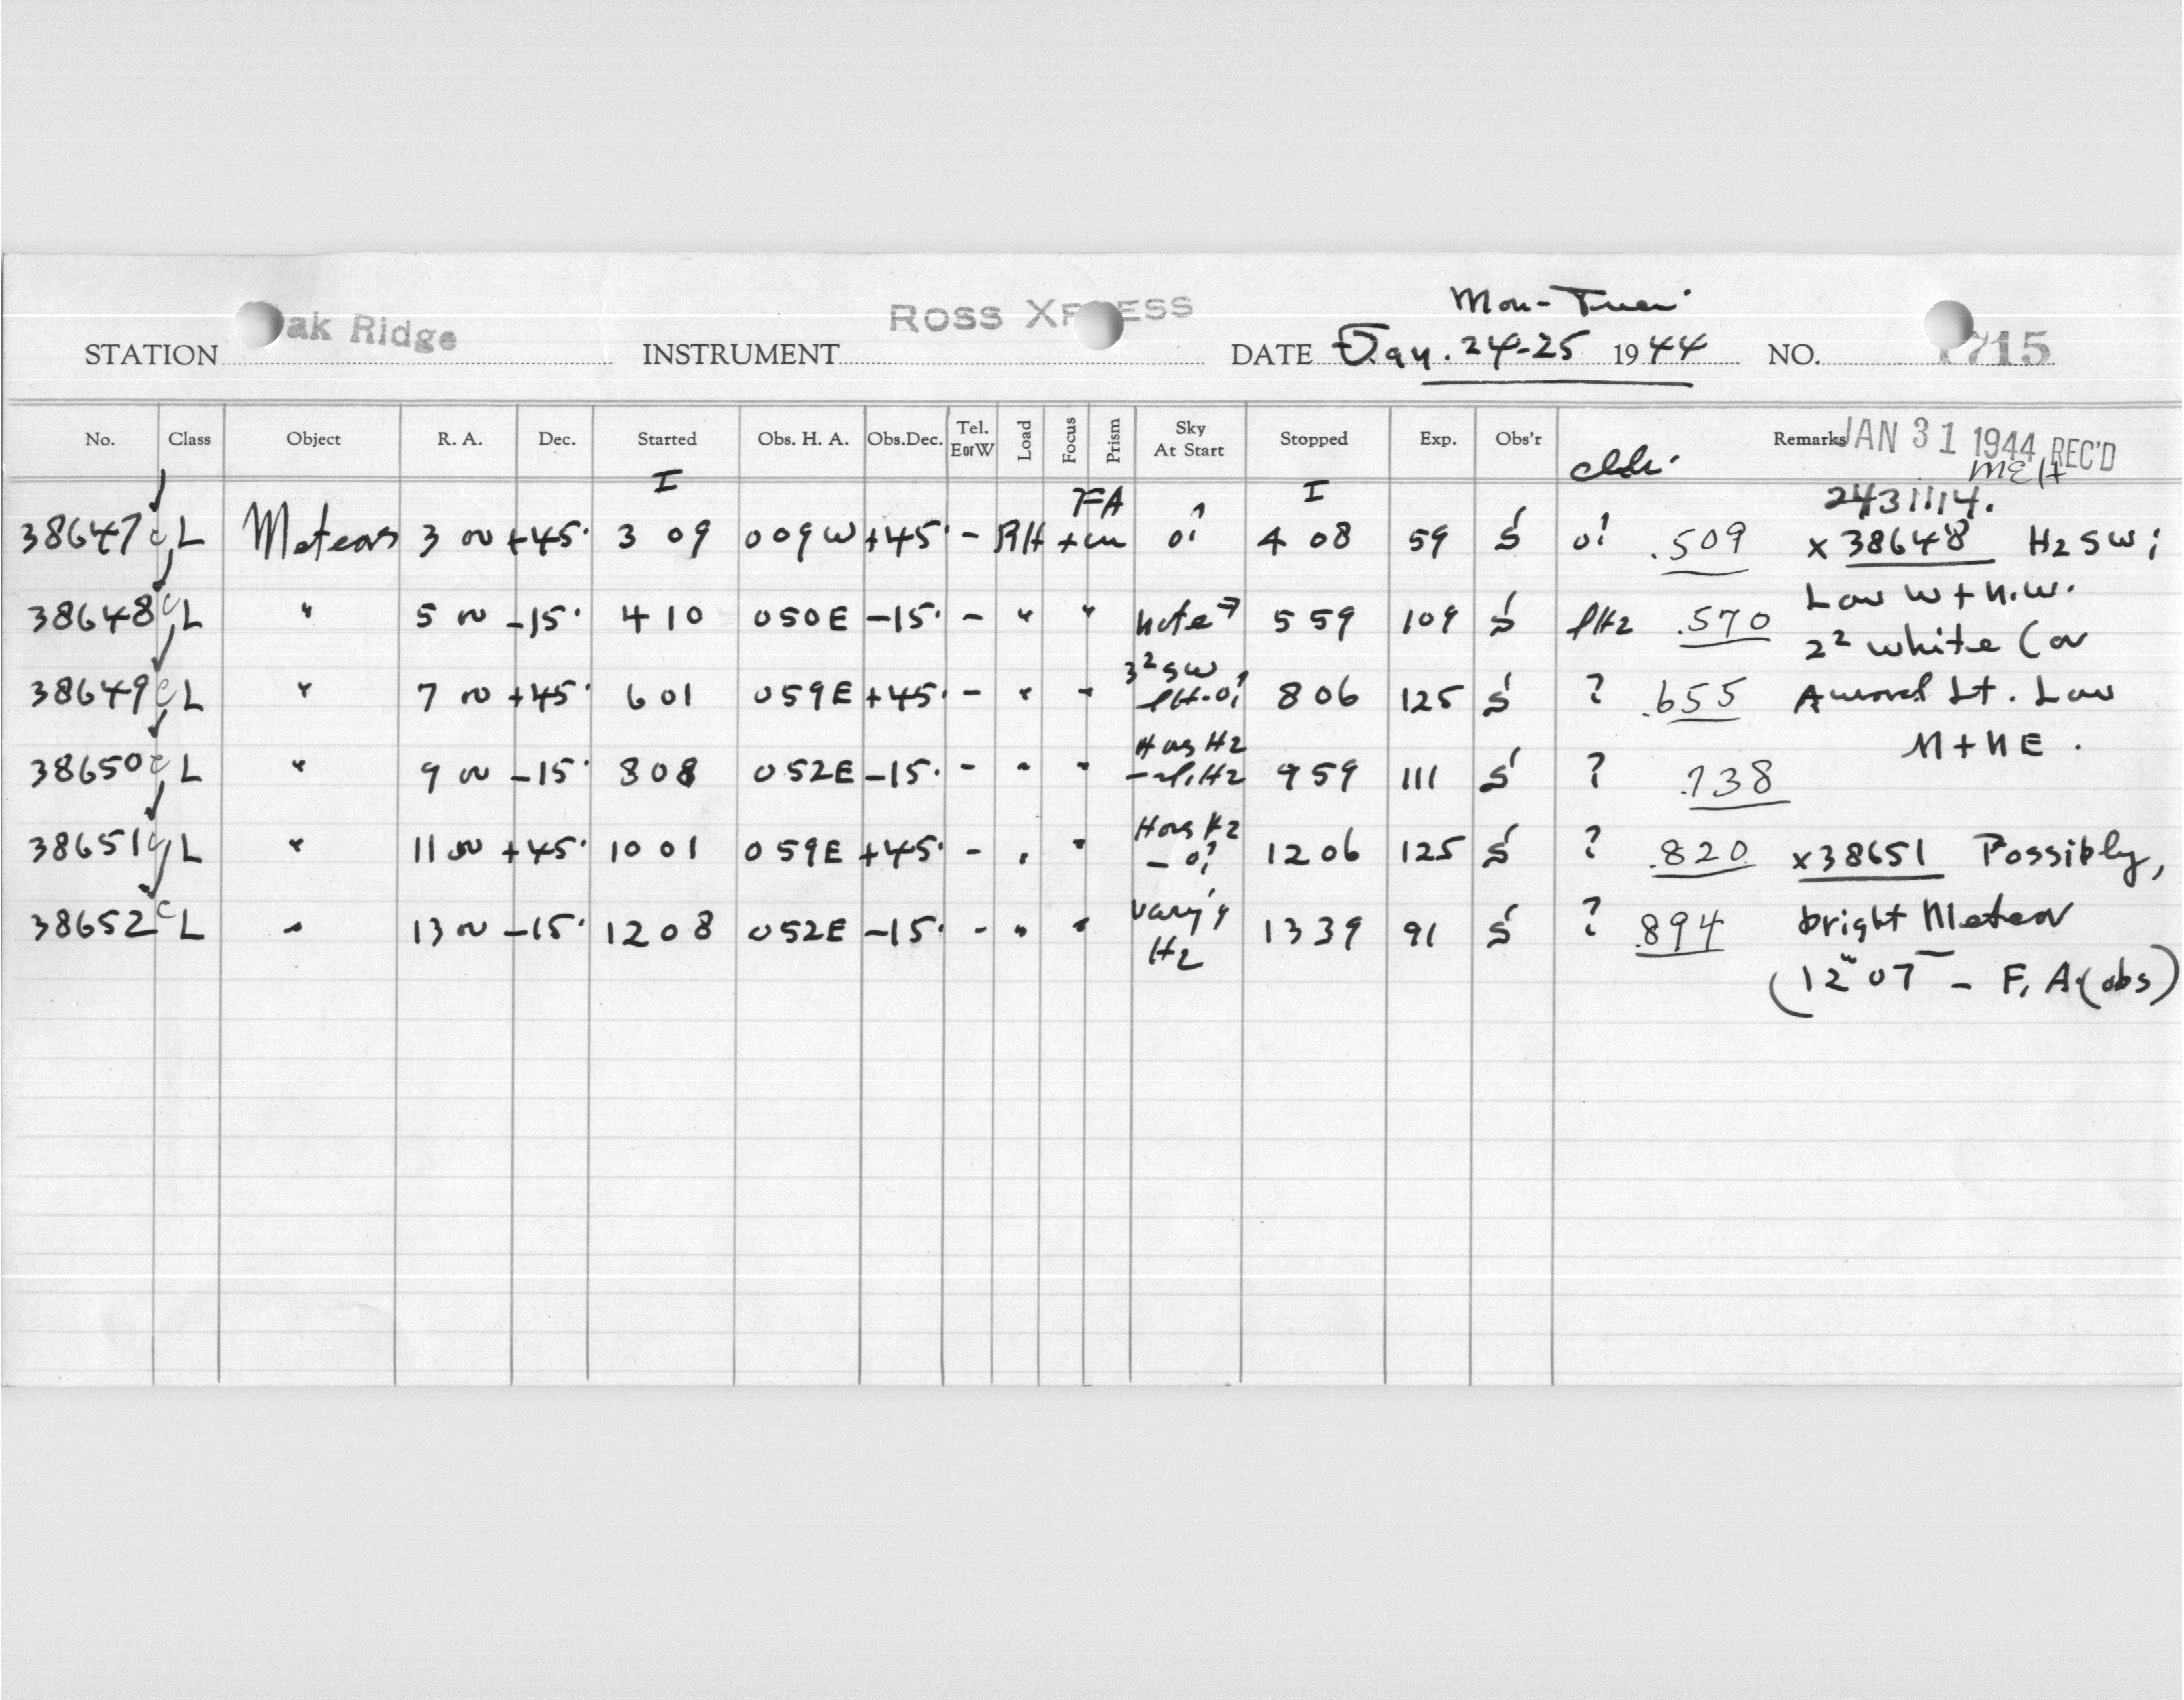 Mon-Tues.
STATION Oak Ridge INSTRUMENT ROSS XPRESS DATE Jan. 24-25 1944 NO. 715
No. Class Object R. A. Dec. Started Obs. H. A. Obs.Dec. Tel. EorW Load Focus Prism Sky At Start Stopped Exp. Obs'r Remarks JAN 31 1944 REC'D
MEH
I FA I 2431114.
38647 c L Meteors 3 00 +45° 3 09 009W +45° - RH + 0! 4 08 59 S 0! .509 x 38648 Hz SW;
38648 c L " 5 00 -15° 4 10 050E -15° - " " note 5 59 109 S lHz .570 Low W + N.W.
2² white (or
3² SW
38649 c L " 7 00 +45° 6 01 059E +45° - " " 8 06 125 S ? .655 Auroral Lt. Low
N + NE.
38650 c L " 9 00 -15° 8 08 052E -15° - " " Hor Hz - sl. Hz 9 59 111 S ? .738
38651 c L " 11 00 +45° 10 01 059E +45° - " " Hor Hz - 0! 12 06 125 S ? .820 x38651 Possibly,
38652 c L " 13 00 -15° 12 08 052E -15° - " " vary'g Hz 13 39 91 S ? .894 bright Meteor
(12 07 - F, A (obs)